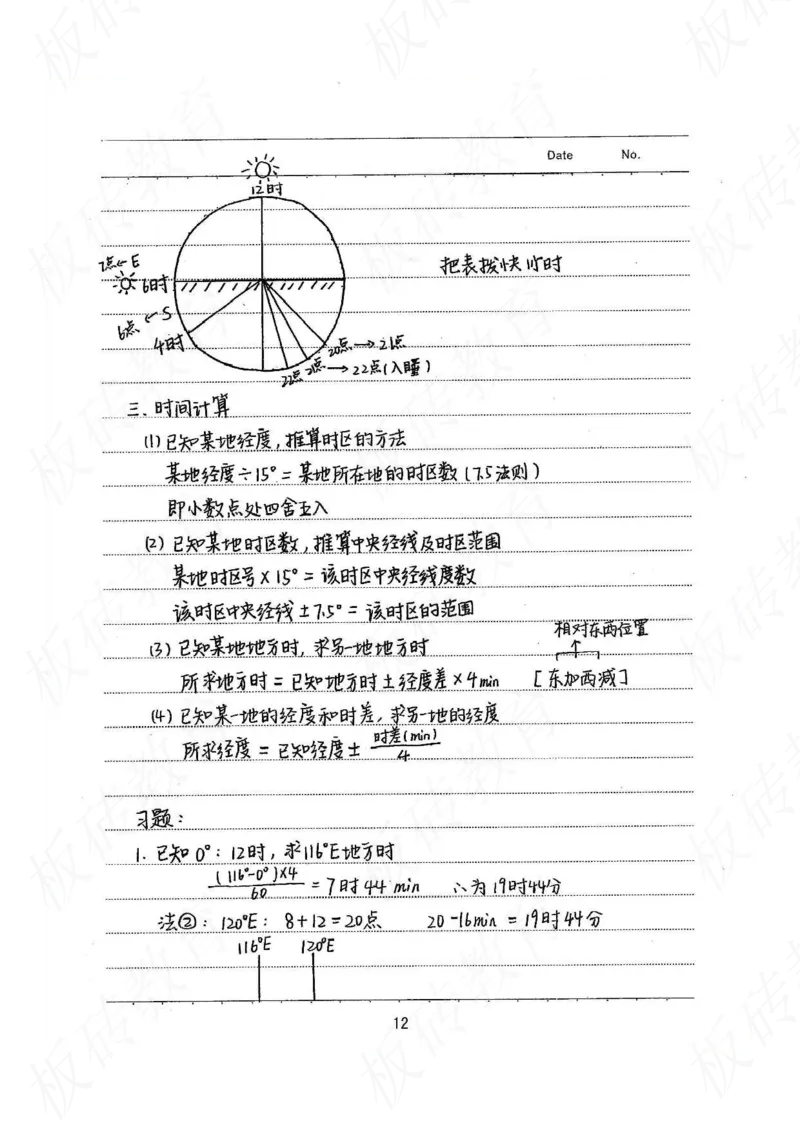 Date No.
12时
2点←E
6时
6点←S
4时
把表拨快1小时
20点→21点
22点 21点→22点(入睡)
三、时间计算
(1)已知某地经度,推算时区的方法
某地经度÷15°=某地所在地的时区数(7.5法则)
即小数点处四舍五入
(2)已知某地时区数,推算中央经线及时区范围
某地时区号×15°=该时区中央经线度数
该时区中央经线±7.5°=该时区的范围
相对东西位置
(3)已知某地地方时,求另一地地方时
所求地方时=已知地方时±经度差×4min [东加西减]
(4)已知某一地的经度和时差,求另一地的经度
所求经度=已知经度± 时差(min)
4
习题:
1.已知0°:12时,求116°E地方时
(116°-0°)×4
60
=7时44min ∴为19时44分
法②:120°E:8+12=20点 20-16min=19时44分
116°E 120°E
12
板砖教育